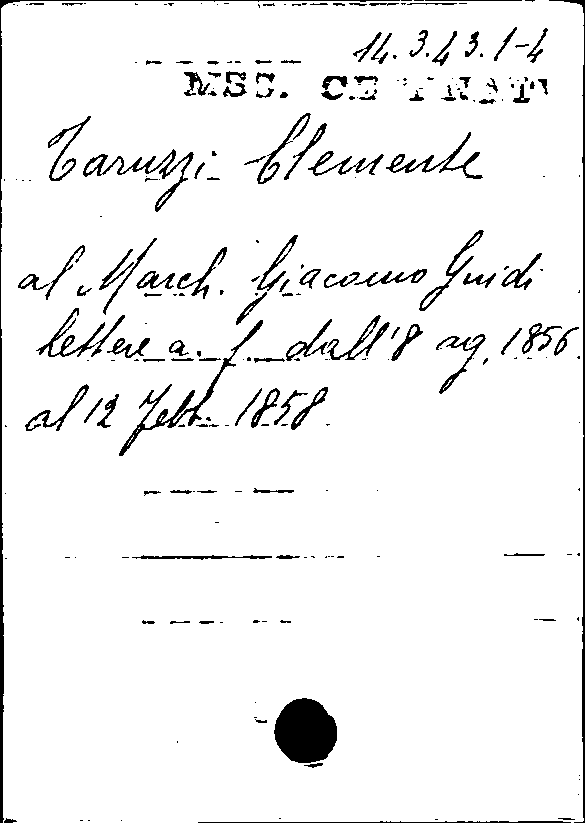 14.3.43.1-4
MSS.
Taruzzi Clemente
al March. Giacomo Guidi
lettere a. f. dall'8 ag. 1856
al 12 Febb. 1858